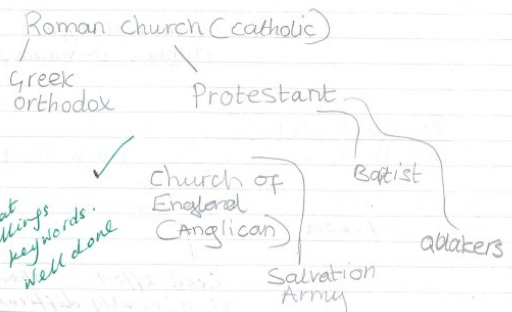 Roman Church (Catholic)
Greek
Orthodox
Protestant
Church of
England
(Anglican)
Baptist
qblakers
Salvation
Army
keywords.
well done